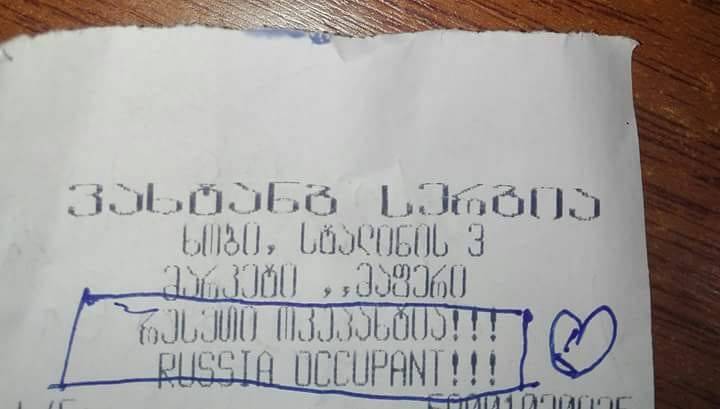 ვახტანგ სერგია
ხობი, სტალინის 3
მარკეტი ,,მაფერი
რუსეთი ოკუპანტია!!!
RUSSIA OCCUPANT!!!